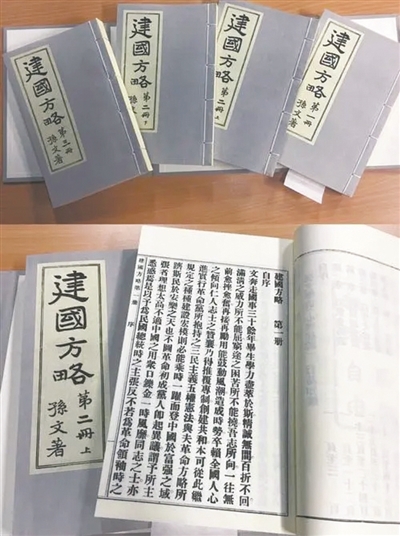 建國方略 第三冊
孫文著
建國方略 第二冊 下
建國方略 第二冊 上
建國方略 第一冊
建國方略 第二冊 上
孫文著
建國方略 第一冊
自序
文奔走國事三十餘年畢生學力盡萃於斯精誠無間百折不回
滿清之威力所不能屈窮途之困苦所不能撓吾志所向一往無
前愈挫愈奮再接再勵用能鼓動風潮造成時勢卒賴全國人心
之傾向仁人志士之贊襄乃得推覆專制創建共和本可從此繼
進實行革命黨所抱持之三民主義五權憲法與夫革命方略所
規定之種種建設宏模則必能乘時一躍而登中國於富強之域
躋斯民於安樂之天也不圖革命初成黨人即起異議謂予所主
張者理想太高不適中國之用衆口鑠金一時風靡同志之士亦
悉惑焉是以予爲民國總統時之主張反不若爲革命領袖時之
建國方略第一冊 序